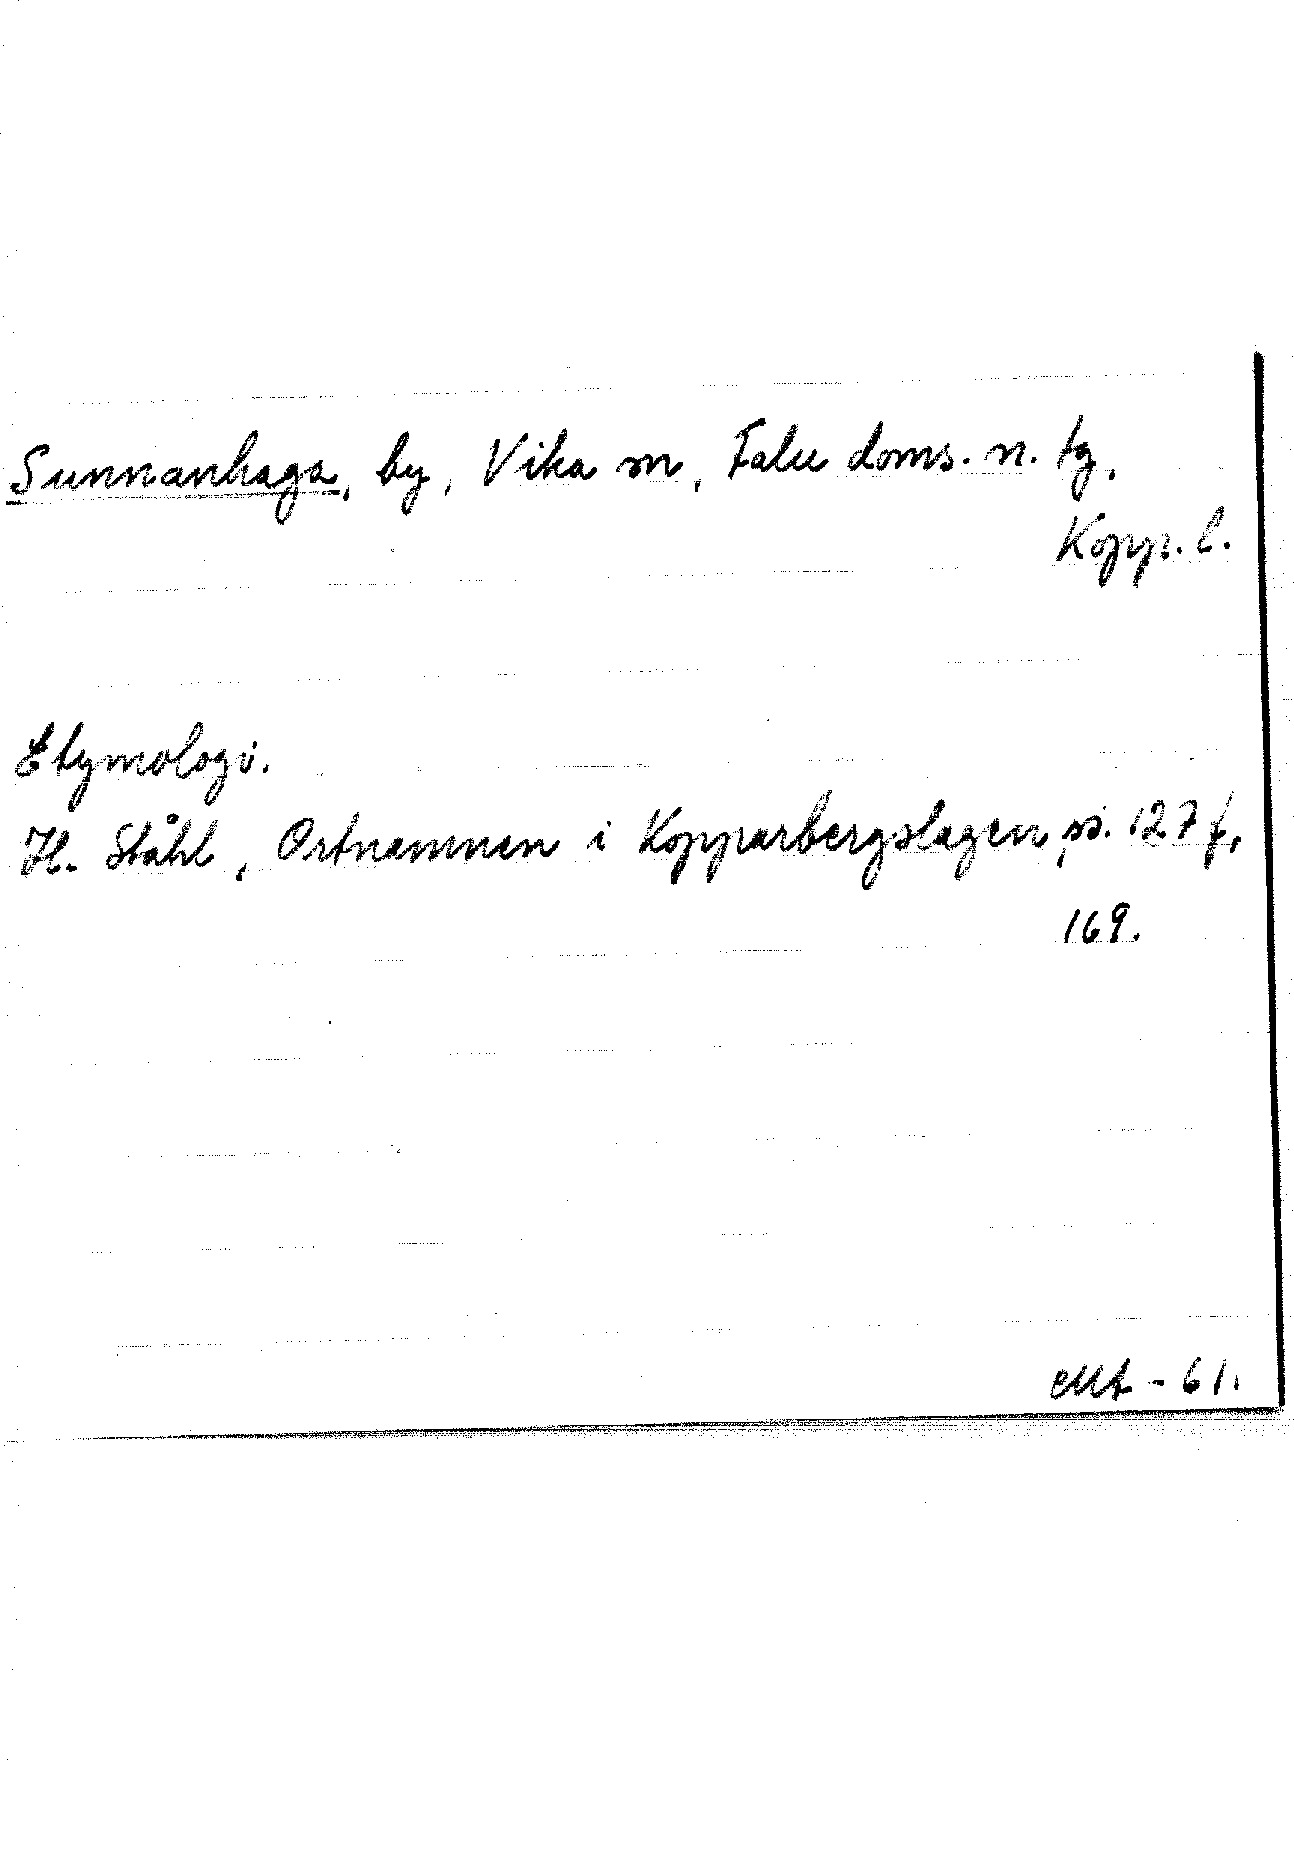 Sunnanhaga, by, Vika sn, Falu doms. n. tg,
Kopp. l.
Etymologi.
H. Ståhl, Ortnamnen i Kopparbergslagen, ss. 127 f,
169.
-61.